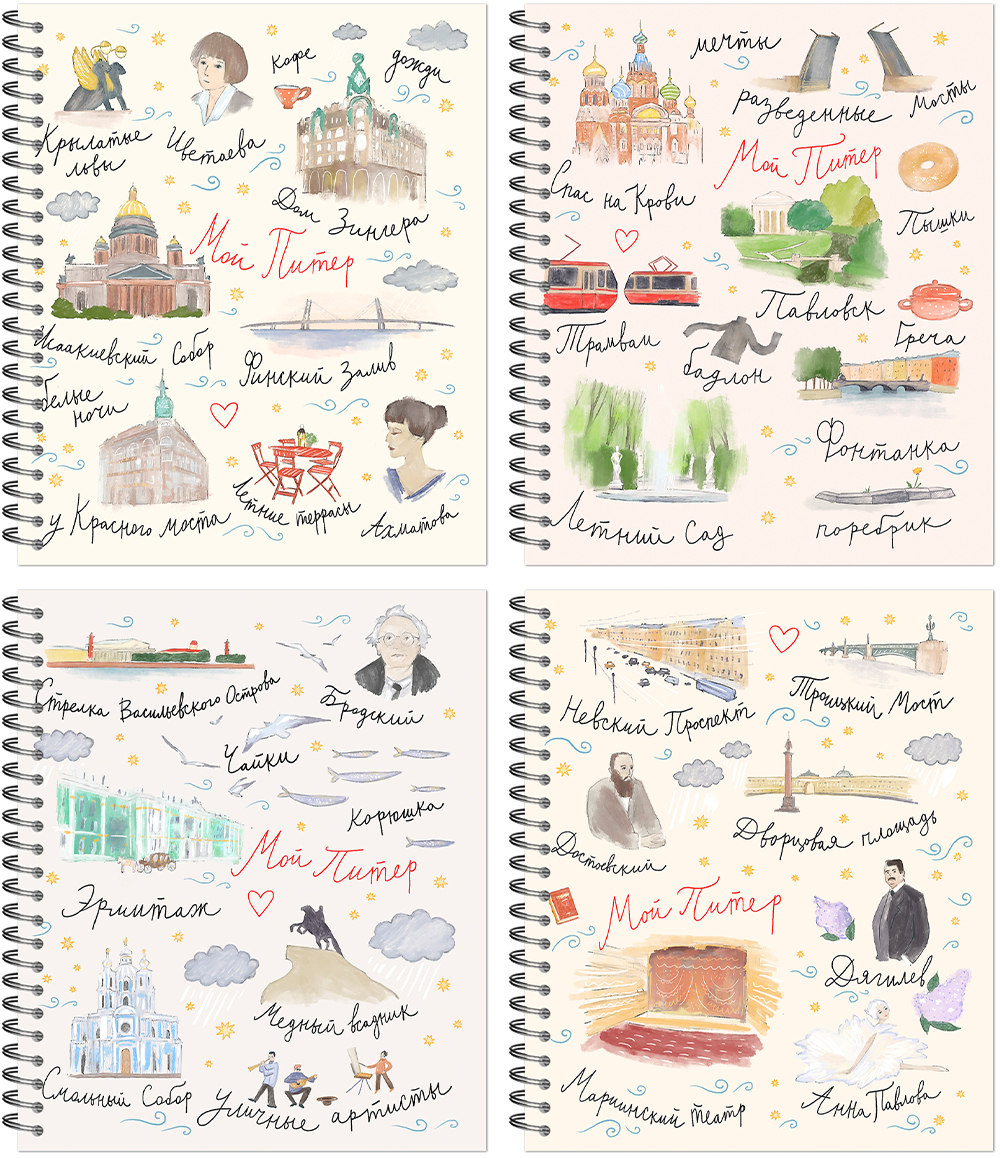 Кофе
дожди
Крылатые
львы
Цветаева
Дом Зингера
Мой Питер
Исаакиевский Собор
Финский Залив
белые
ночи
у Красного моста
Летние террасы
Ахматова
мечты
разведенные
Мосты
Мой Питер
Спас на Крови
Пышки
Павловск
Трамваи
бадлон
Греча
Фонтанка
Летний Сад
поребрик
Стрелка Васильевского Острова
Бродский
Чайки
Корюшка
Мой Питер
Эрмитаж
Медный всадник
Смольный Собор
Уличные артисты
Невский Проспект
Троицкий Мост
Достоевский
Дворцовая площадь
Мой Питер
Дягилев
Мариинский театр
Анна Павлова